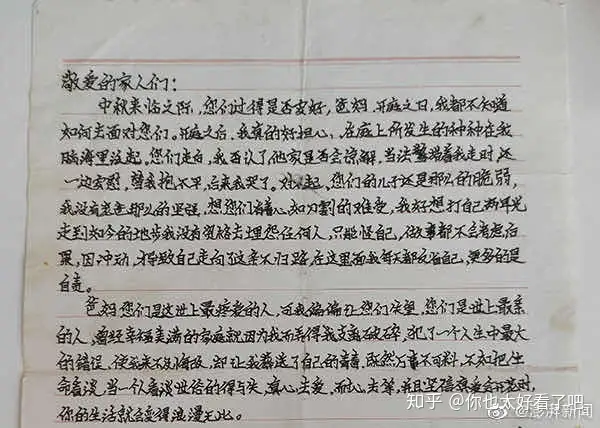 敬爱的家人们:
中秋来临之际,您们过得是否安好,爸妈,开庭之日,我都不知道
如何去面对您们。开庭之后,我真的好担心,在庭上所发生的种种在我
脑海里泛起。您们走后,我否认了他家是否会谅解,当法警押着我走时,还
一边安慰,替我抱不平,后来我哭了。对不起,您们的儿子还是那么的脆弱,
我没有意志那么的坚强,想您们有着心如刀割的难受,我好想打自己两耳光
走到如今的地步我没有资格去埋怨任何人,只能怪自己,做事都不会考虑后
果,因冲动,才导致自己走向了这条不归路,在这里面我每天都反省自己,更多的是
自责。
爸妈您们是这世上最疼爱的人,而我偏偏让您们失望,您们是世上最亲
的人,曾经幸福美满的家庭就因为我而弄得我支离破碎,犯了一个人生中最大
的错误,使我来不及悔改,却让我葬送了自己的青春,既然万事不可料,不如把生
命看淡,当一个看淡世俗的得与失,真心去爱,而
你的生活就会变得浪漫无比。
知乎 @你也太好看了吧
@澎湃新闻